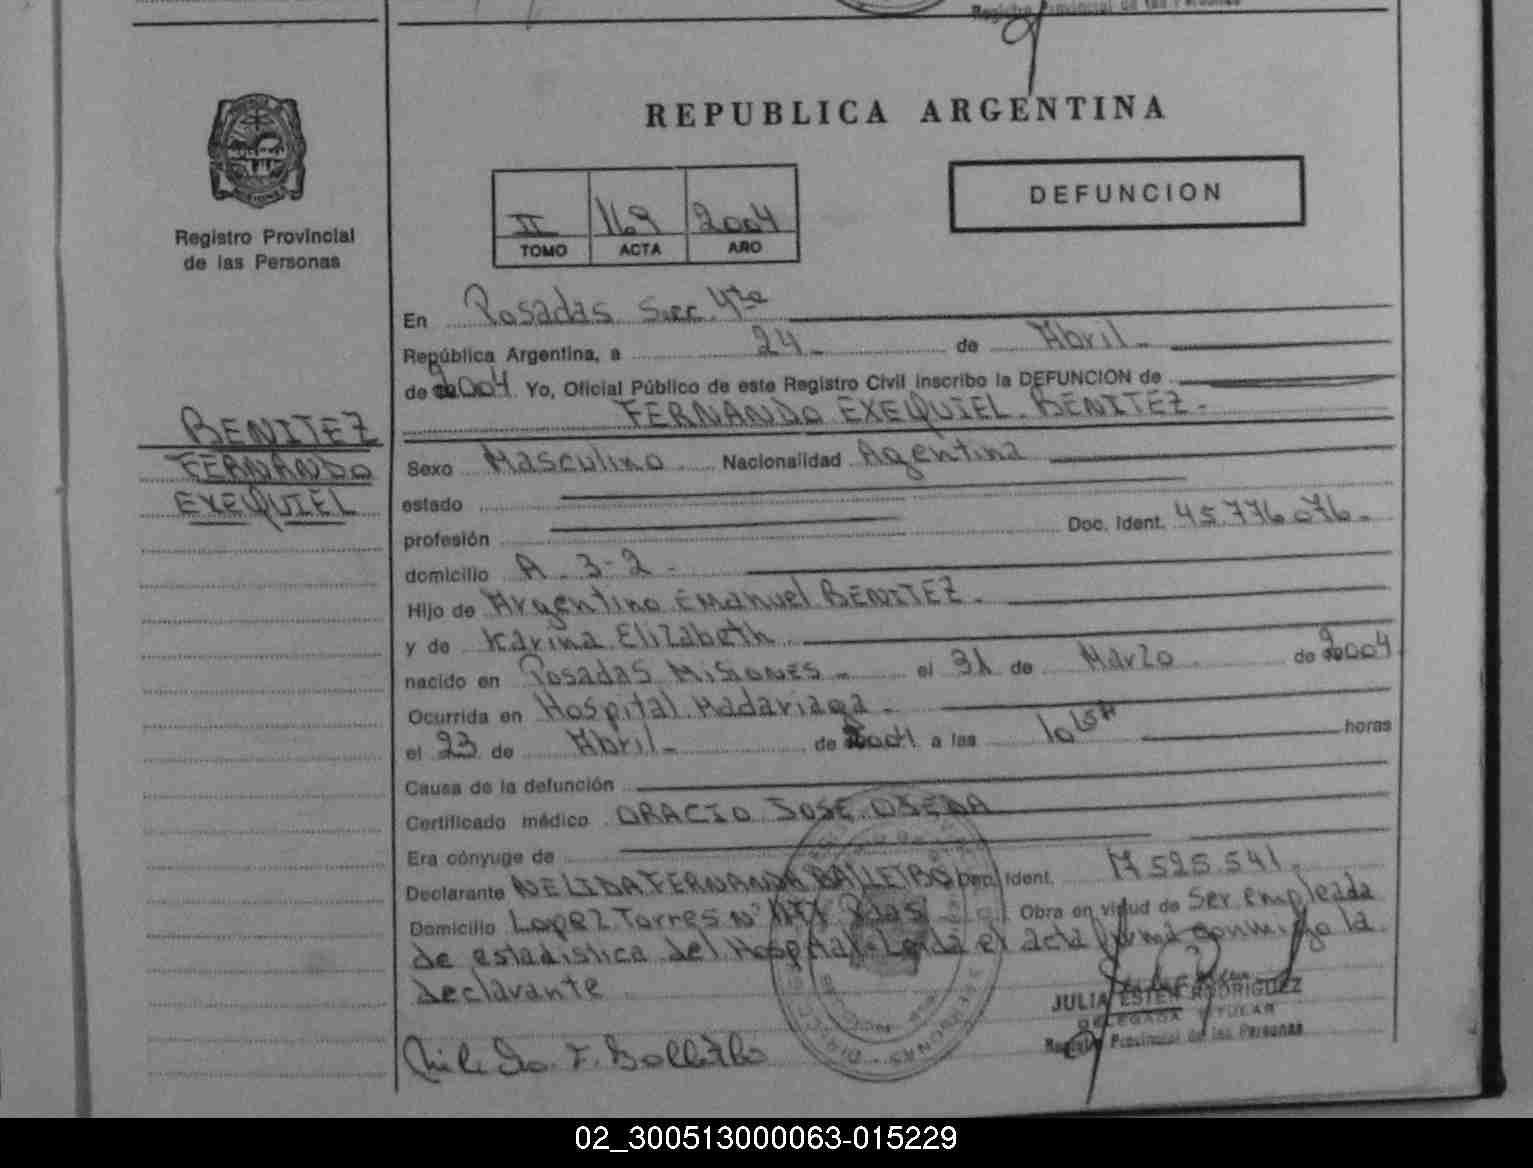 Registro Provincial de las Personas
REPUBLICA ARGENTINA
DEFUNCION
II 169 2004
TOMO ACTA AÑO
Registro Provincial
de las Personas
En Posadas Secc. 4ta
República Argentina, a 24 de Abril
de 2004 Yo, Oficial Público de este Registro Civil inscribo la DEFUNCION de
FERNANDO EXEQUIEL BENITEZ
BENITEZ
FERNANDO
EXEQUIEL
Sexo Masculino Nacionalidad Agentina
estado
profesión Doc. Ident. 45.776.076
domicilio A 3-2
Hijo de Argentino Emanuel BENITEZ
y de Karina Elizabeth
nacido en Posadas Misiones el 31 de Marzo de 2004
Ocurrida en Hospital Madariaga
el 23 de Abril de 2004 a las 10 15H horas
Causa de la defunción
Certificado médico ORACIO JOSE OJEDA
Era cónyuge de
Declarante NELIDA FERNANDA BALLETBO Doc. Ident. M 525.541
Domicilio Lopez Torres Nº Pdas Obra en virtud de Ser empleada
de estadistica del Hospital Leida el acta firma conmigo la
declarante
JULIA ESTER RODRIGUEZ
DELEGADA TITULAR
Registro Provincial de las Personas
02_300513000063-015229